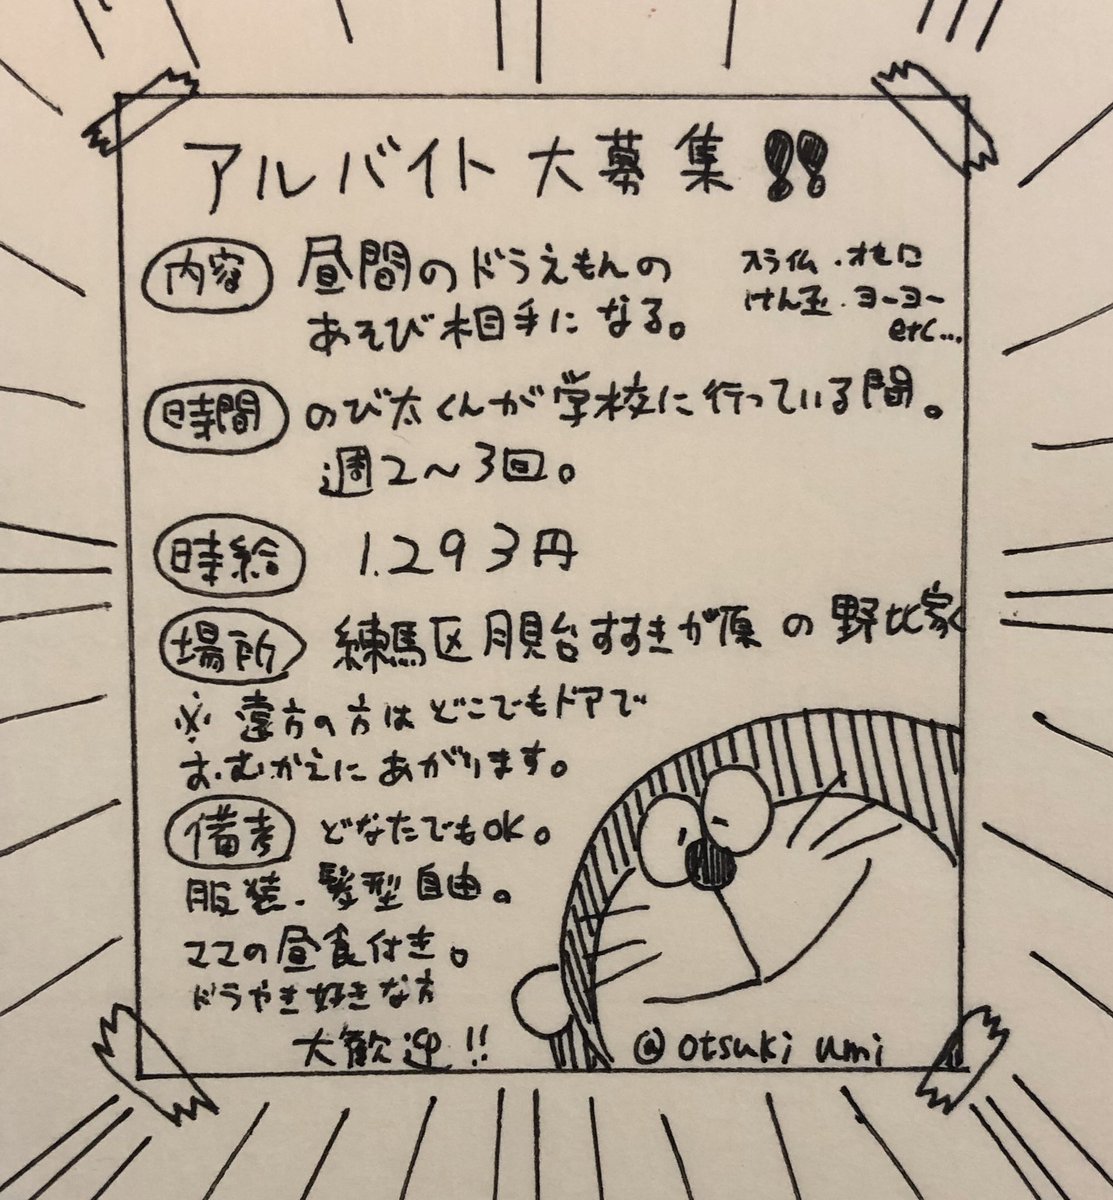 アルバイト大募集!!
内容 昼間のドラえもんの
あそび相手になる。
スライム・オセロ
けん玉・ヨーヨー
etc...
時間 のび太くんが学校に行っている間。
週2〜3回。
時給 1.293円
場所 練馬区月見台すすきが原の野比家
※遠方の方はどこでもドアで
おむかえにあがります。
備考 どなたでもOK。
服装・髪型自由。
ママの昼食付き。
ドラやき好きな方
大歓迎!!
@otsuki umi